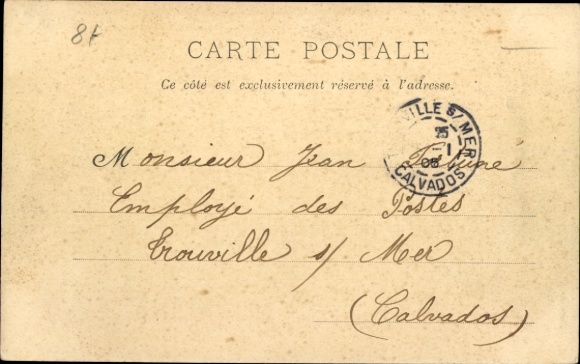 8f
CARTE POSTALE
Ce côté est exclusivement réservé à l'adresse.
VILLE S/ MER
25
-1
05
CALVADOS
Monsieur Jean
Employé des Postes
Trouville s/ Mer
(Calvados)